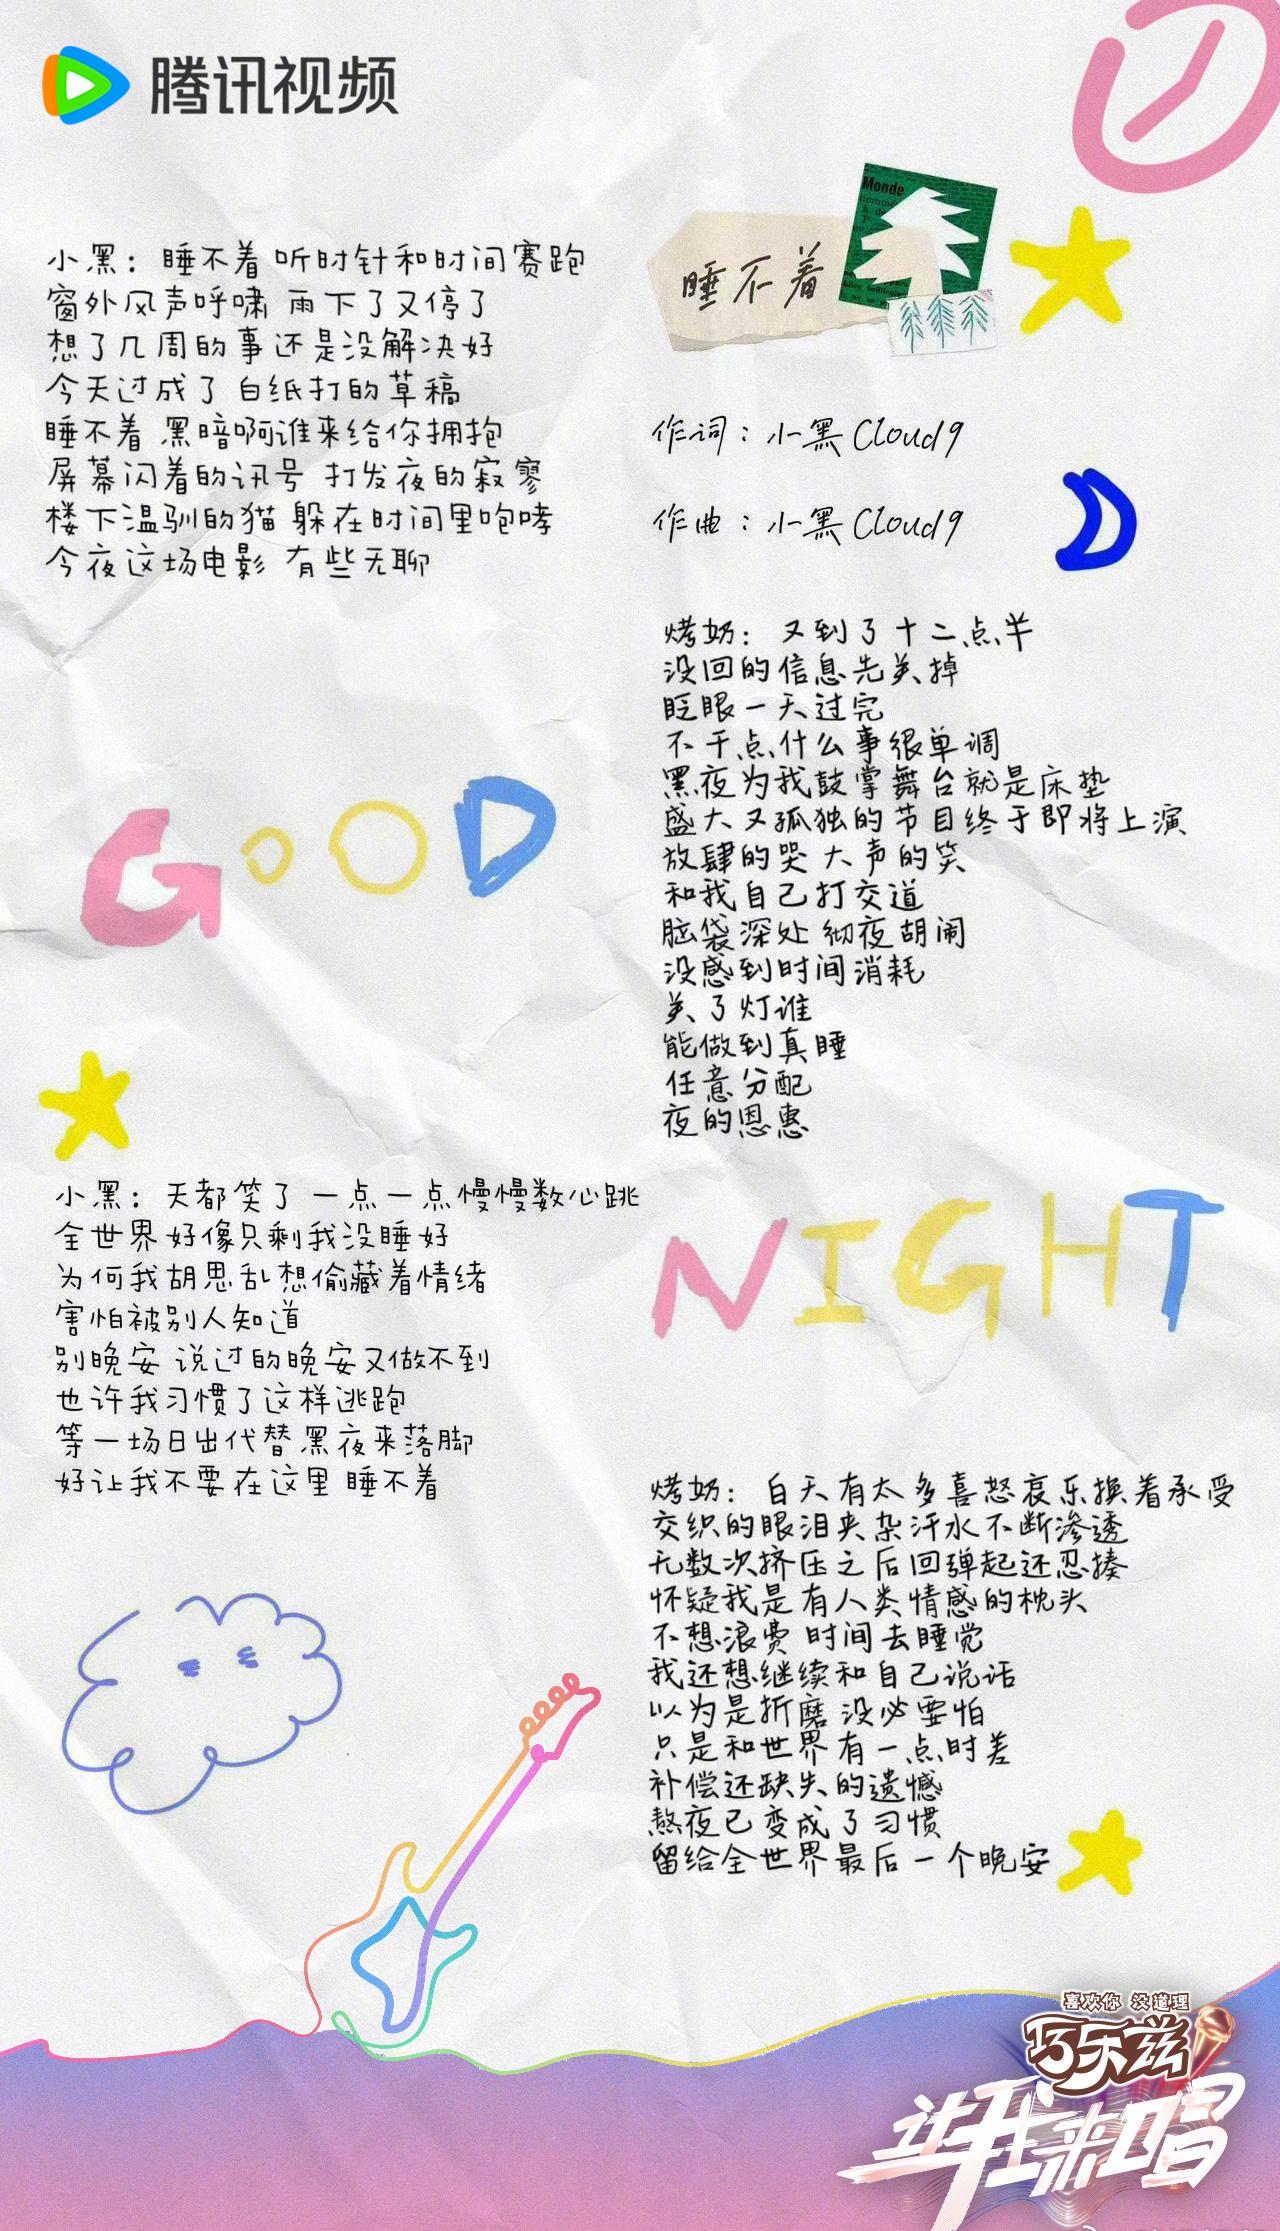 腾讯视频
Monde
睡不着
作词：小黑Cloud9
作曲：小黑Cloud9
小黑：睡不着 听时针和时间赛跑
窗外风声呼啸 雨下了又停了
想了几周的事还是没解决好
今天过成了 白纸打的草稿
睡不着 黑暗啊谁来给你拥抱
屏幕闪着的讯号 打发夜的寂寥
楼下温驯的猫 躲在时间里咆哮
今夜这场电影 有些无聊
烤奶：又到了十二点半
没回的信息先关掉
眨眼一天过完
不干点什么事很单调
黑夜为我鼓掌舞台就是床垫
盛大又孤独的节目终于即将上演
放肆的哭 大声的笑
和我自己打交道
脑袋深处 彻夜胡闹
没感到时间消耗
关了灯谁
能做到真睡
任意分配
夜的恩惠
GOOD
NIGHT
小黑：天都笑了 一点一点慢慢数心跳
全世界好像只剩我没睡好
为何我胡思乱想偷藏着情绪
害怕被别人知道
别晚安 说过的晚安又做不到
也许我习惯了这样逃跑
等一场日出代替黑夜来落脚
好让我不要在这里 睡不着
烤奶：白天有太多喜怒哀乐换着承受
交织的眼泪夹杂汗水不断渗透
无数次挤压之后回弹起还忍揍
怀疑我是有人类情感的枕头
不想浪费 时间去睡觉
我还想继续和自己说话
以为是折磨 没必要怕
只是和世界有一点时差
补偿还缺失的遗憾
熬夜已变成了习惯
留给全世界最后一个晚安
喜欢你 没道理
巧乐兹
让我来唱